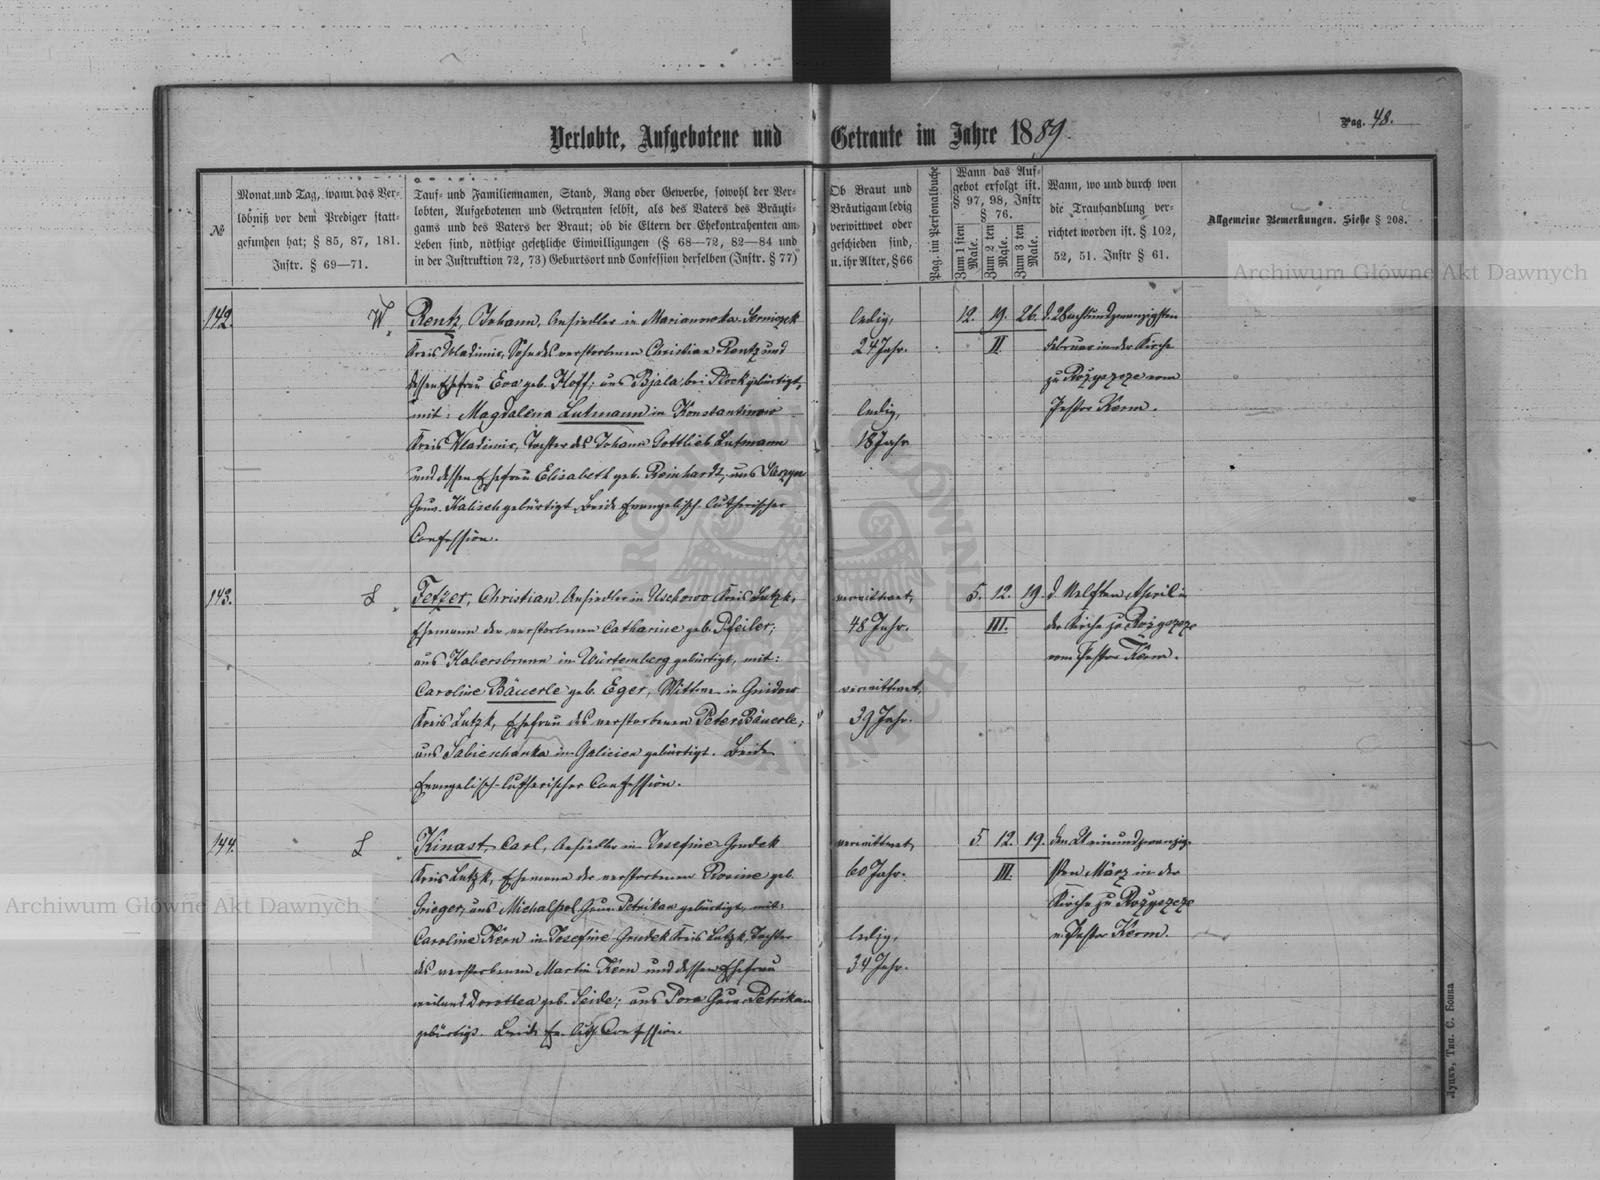 Verlobte, Aufgebotene und Getraute im Jahre 1889.
Pag. 48.
№
Monat und Tag, wann das Ver-
löbniß vor dem Prediger statt-
gefunden hat; § 85, 87, 181.
Instr. § 69—71.
Tauf- und Familiennamen, Stand, Rang oder Gewerbe, sowohl der Ver-
lobten, Aufgebotenen und Getrauten selbst, als des Vaters des Bräuti-
gams und des Vaters der Braut; ob die Eltern der Ehekontrahenten am
Leben sind, nöthige gesetzliche Einwilligungen (§ 68—72, 82—84 und
in der Instruktion 72, 73) Geburtsort und Confession derselben (Instr. § 77)
Ob Braut und
Bräutigam ledig
verwittwet oder
geschieden sind,
u. ihr Alter, § 66
Pag. im Personalbuche
Wann das Auf-
gebot erfolgt ist.
§ 97, 98, Instr
§ 76.
Zum 1 sten Male.
Zum 2 ten Male.
Zum 3 ten Male.
Wann, wo und durch wen
die Trauhandlung ver-
richtet worden ist. § 102,
52, 51. Instr § 61.
Allgemeine Bemerkungen. Siehe § 208.
142.
W.
Rentz, Johann, Ansiedler in Mariannowka
Kreis Wladimir, Sohn des verstorbenen Christian Rentz und
dessen Ehefrau Eva geb. Hoff; aus Bjala bei Plock gebürtigt,
mit: Magdalena Lutmann in Konstantinow
Kreis Wladimir, Tochter des Johann Gottlieb Lutmann
und dessen Ehefrau Elisabeth geb. Reinhardt, aus
Gouv. Kalisch gebürtigt. Beide Evangelisch-Lutherischer
Confession.
ledig,
24 Jahr.
ledig,
18 Jahr
12. 19. 26.
II.
d. 28 achtundzwanzigsten
Februar in der Kirche
zu Rożyszcze vom
Pastor Kerm.
143.
L.
Fetzer, Christian, Ansiedler in Uschowo Kreis Lutzk,
Ehemann der verstorbenen Catharine geb. Pfeiler;
aus Habersbrunn in Würtemberg gebürtigt, mit:
Caroline Bäuerle geb. Eger, Wittwe in Gnidow
Kreis Lutzk, Ehefrau des verstorbenen Peter Bäuerle;
aus Sabieschanka in Galicien gebürtigt. Beide
Evangelisch-lutherischer Confession.
verwittwet,
48 Jahr.
verwittwet,
39 Jahr.
5. 12. 19.
III.
April in
der Kirche zu Rożyszcze
vom Pastor Kerm.
144.
L.
Kinast, Carl, Ansiedler in Josefine Grudek
Kreis Lutzk, Ehemann der verstorbenen Rosine geb.
Grieger, aus Michalpol Gouv. Petrikau gebürtigt, mit:
Caroline Kern in Josefine Grudek Kreis Lutzk, Tochter
des verstorbenen Martin Kern und dessen Ehefrau
weiland Dorothea geb. Seide; aus Pora Gouv. Petrikau
gebürtigt. Beide Ev. luth. Confession.
verwittwet,
60 Jahr.
ledig,
34 Jahr.
5. 12. 19.
III.
den 21 einundzwanzig-
sten März in der
Kirche zu Rożyszcze
v. Pastor Kerm.
Луцкъ, Тип. С. Бонка
Archiwum Główne Akt Dawnych
Archiwum Główne Akt Dawnych